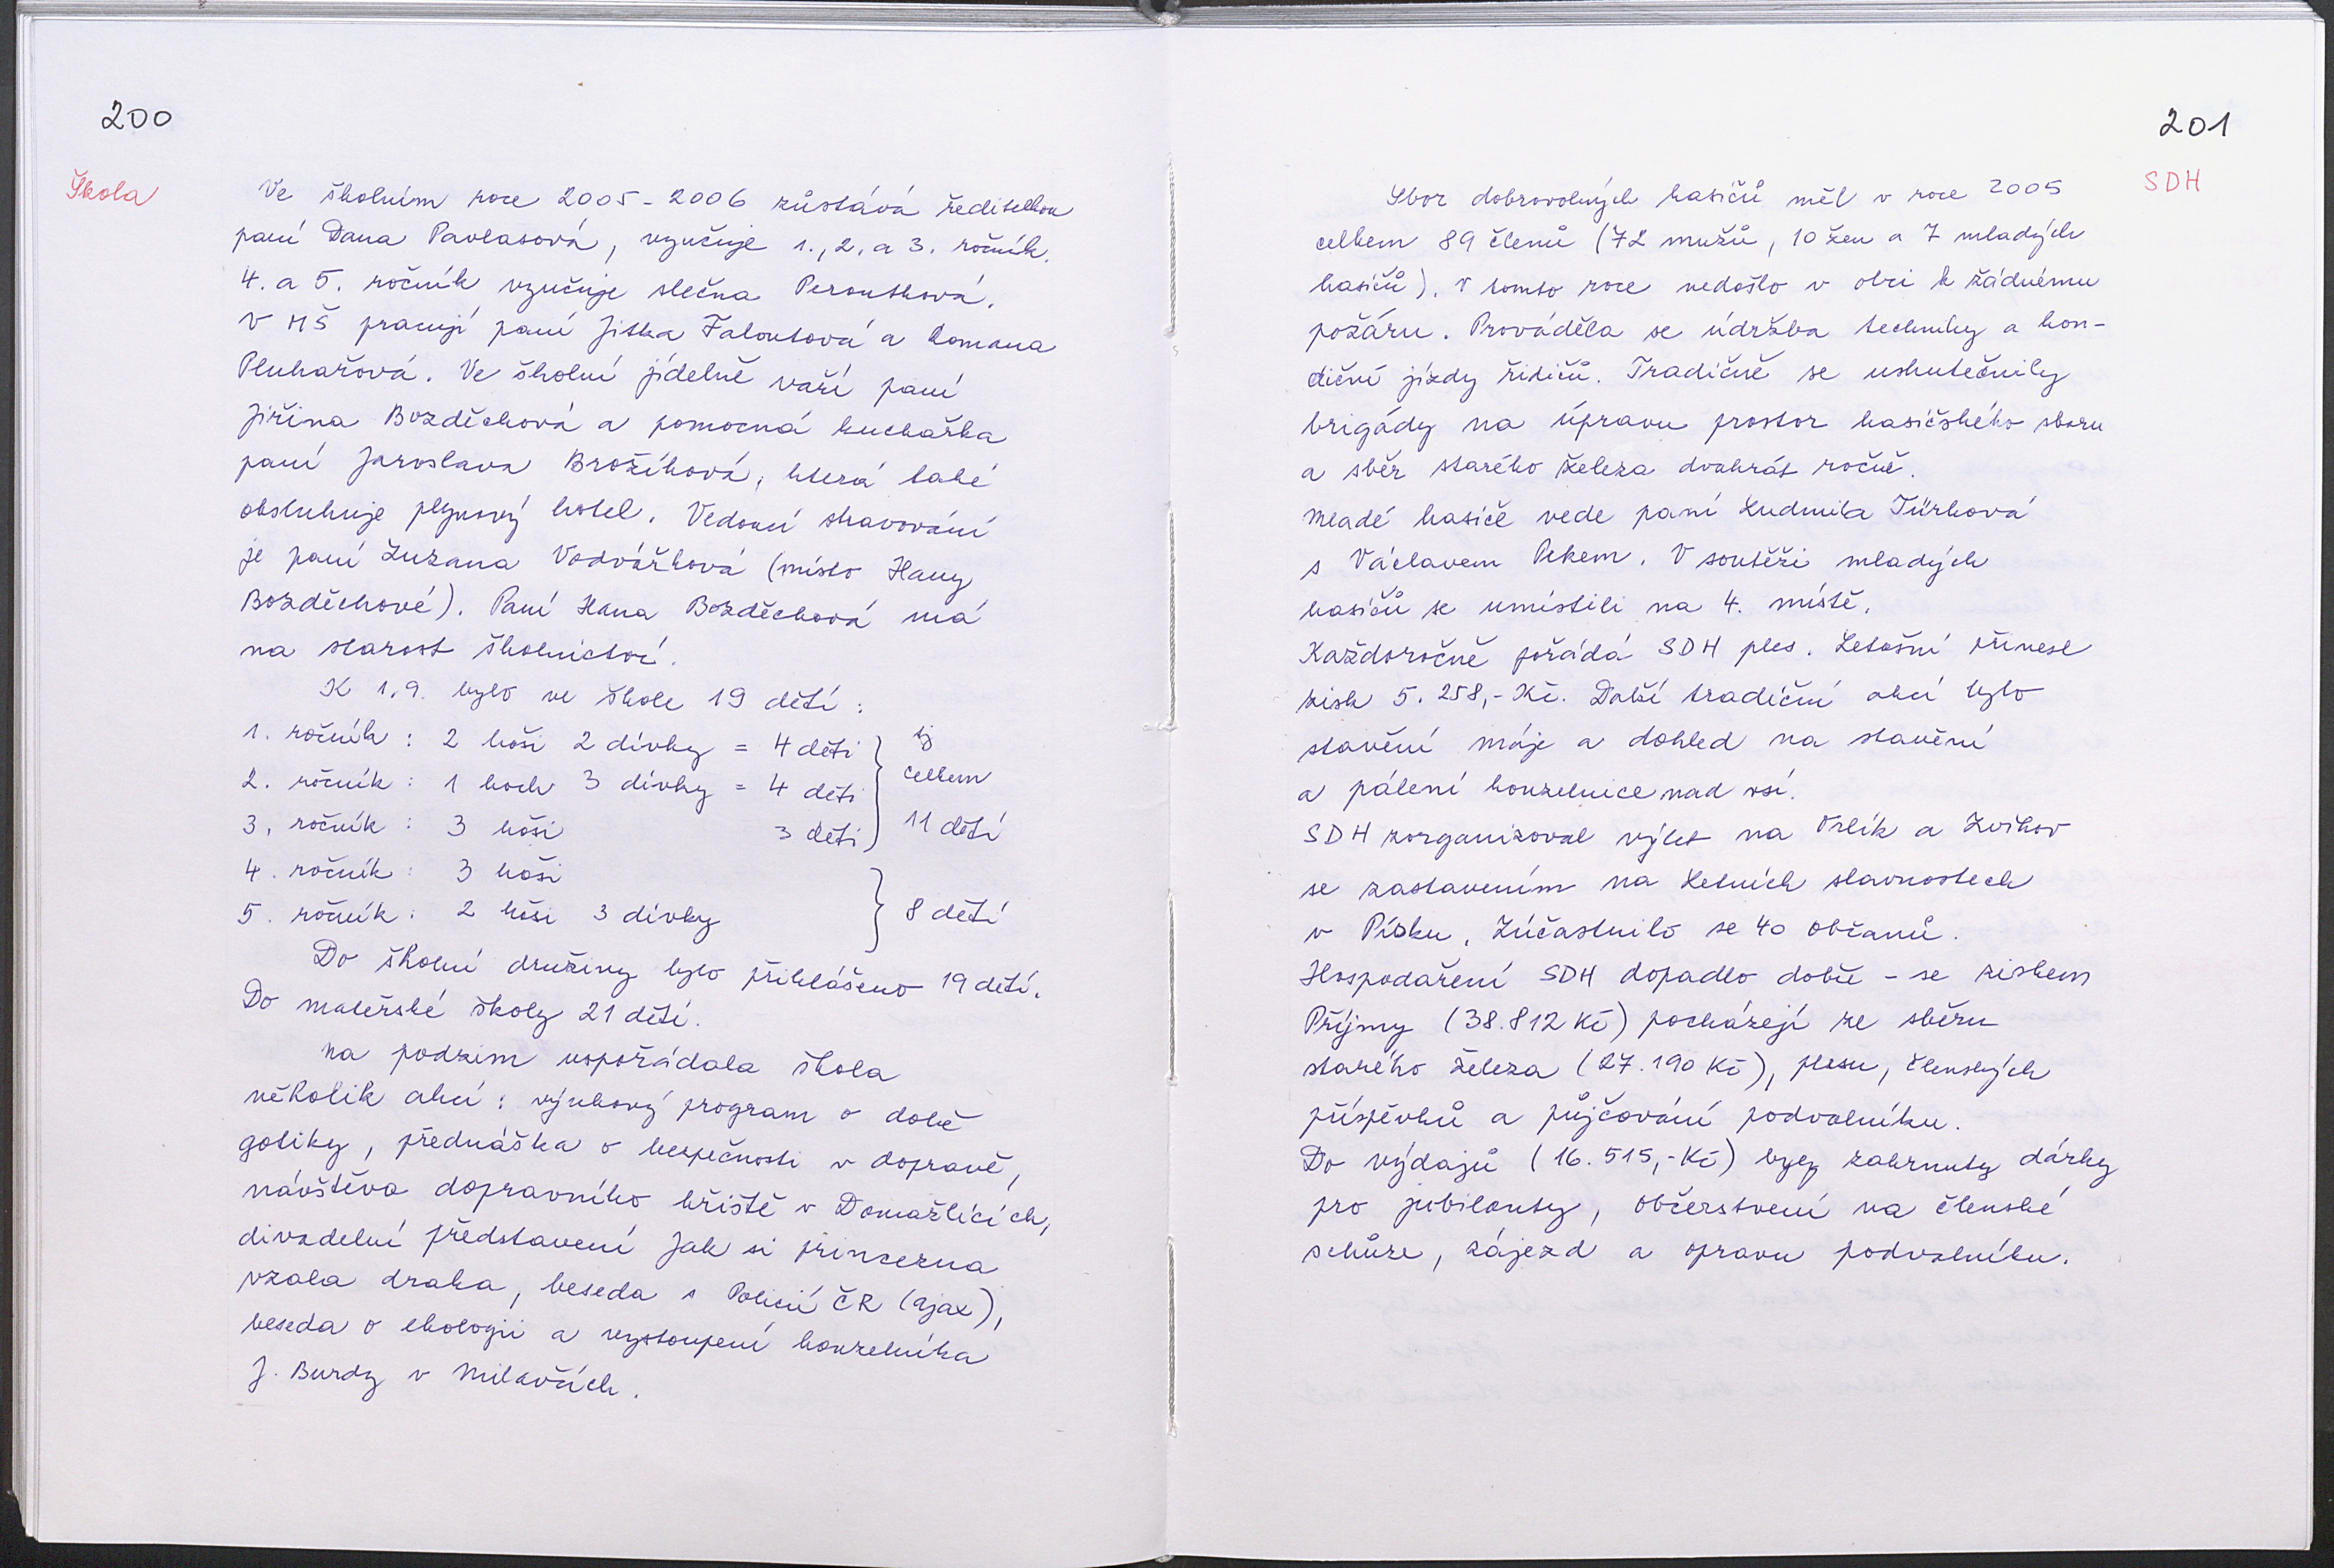 200
Škola
Ve školním roce 2005-2006 zůstává ředitelkou
paní Dana Pavlasová, vyučuje 1., 2. a 3. ročník.
4. a 5. ročník vyučuje slečna Peroutková.
V MŠ pracují paní Jitka Faloutová a Romana
Pluhařová. Ve školní jídelně vaří paní
Jiřina Bozděchová a pomocná kuchařka
paní Jaroslava Brožíková, která také
obsluhuje plynový kotel. Vedoucí stravování
je paní Zuzana Vodvářková (místo Hany
Bozděchové). Paní Hana Bozděchová má
na starost školnictví.
K 1.9. bylo ve škole 19 dětí:
1. ročník: 2 hoši 2 dívky = 4 děti } tj
2. ročník: 1 hoch 3 dívky = 4 děti celkem
3. ročník: 3 hoši 3 děti 11 dětí
4. ročník: 3 hoši
5. ročník: 2 hoši 3 dívky } 8 dětí
Do školní družiny bylo přihlášeno 19 dětí.
Do mateřské školy 21 dětí.
Na podzim uspořádala škola
několik akcí: výukový program o době
gotiky, přednáška o bezpečnosti v dopravě,
návštěva dopravního hřiště v Domažlicích,
divadelní představení Jak si princezna
vzala draka, beseda s Policií ČR (Ajax),
beseda o ekologii a vystoupení kouzelníka
J. Burdy v Milavčích.
201
SDH
Sbor dobrovolných hasičů měl v roce 2005
celkem 89 členů (72 mužů, 10 žen a 7 mladých
hasičů). V tomto roce nedošlo v obci k žádnému
požáru. Prováděla se údržba techniky a kon-
diční jízdy řidičů. Tradičně se uskutečnily
brigády na úpravu prostor hasičského sboru
a sběr starého železa dvakrát ročně.
Mladé hasiče vede paní Ludmila Türková
s Václavem Pekem. V soutěži mladých
hasičů se umístili na 4. místě.
Každoročně pořádá SDH ples. Letošní přinesl
zisk 5.258,- Kč. Další tradiční akcí bylo
stavění máje a dohled na stavění
a pálení kouzelnice nad vsí.
SDH zorganizoval výlet na Orlík a Zvíkov
se zastavením na Letních slavnostech
v Písku. Zúčastnilo se 40 občanů.
Hospodaření SDH dopadlo dobře - se ziskem
Příjmy (38.812 Kč) pocházejí ze sběru
starého železa (27.190 Kč), plesu, členských
příspěvků a půjčování podvalníku.
Do výdajů (16.515,- Kč) byly zahrnuty dárky
pro jubilanty, občerstvení na členské
schůze, zájezd a opravu podvalníku.